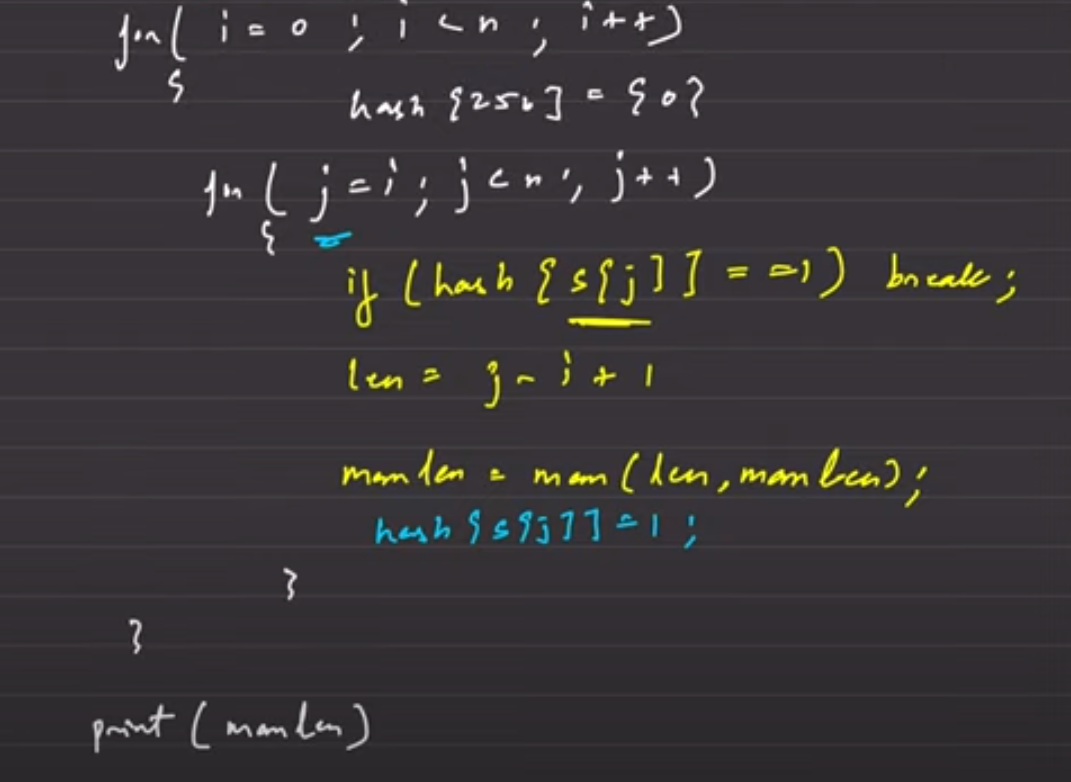 for( i = 0 ; i < n ; i++)
{
hash [256] = {0}
for ( j = i ; j < n ; j++)
{
if (hash [s[j]] == 1) break;
len = j - i + 1
maxlen = max(len, maxlen);
hash [s[j]] = 1 ;
}
}
print (maxlen)